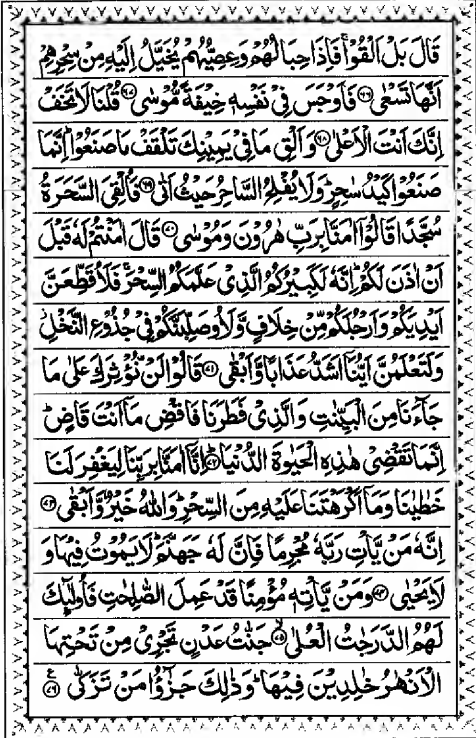 قَالَ بَلْ اَلْقُوْا ۚ فَاِذَا حِبَالُهُمْ وَعِصِيُّهُمْ يُخَيَّلُ اِلَيْهِ مِنْ سِحْرِهِمْ
اَنَّهَا تَسْعٰى ۝۶۶ فَاَوْجَسَ فِيْ نَفْسِهٖ خِيْفَةً مُّوْسٰى ۝۶۷ قُلْنَا لَا تَخَفْ
اِنَّكَ اَنْتَ الْاَعْلٰى ۝۶۸ وَاَلْقِ مَا فِيْ يَمِيْنِكَ تَلْقَفْ مَا صَنَعُوْا ؕ اِنَّمَا
صَنَعُوْا كَيْدُ سٰحِرٍ ؕ وَلَا يُفْلِحُ السَّاحِرُ حَيْثُ اَتٰى ۝۶۹ فَاُلْقِيَ السَّحَرَةُ
سُجَّدًا قَالُوْۤا اٰمَنَّا بِرَبِّ هٰرُوْنَ وَمُوْسٰى ۝۷۰ قَالَ اٰمَنْتُمْ لَهٗ قَبْلَ
اَنْ اٰذَنَ لَكُمْ ؕ اِنَّهٗ لَكَبِيْرُكُمُ الَّذِيْ عَلَّمَكُمُ السِّحْرَ ۚ فَلَاُقَطِّعَنَّ
اَيْدِيَكُمْ وَاَرْجُلَكُمْ مِّنْ خِلَافٍ وَّلَاُوصَلِّبَنَّكُمْ فِيْ جُذُوْعِ النَّخْلِ
وَلَتَعْلَمُنَّ اَيُّنَاۤ اَشَدُّ عَذَابًا وَّاَبْقٰى ۝۷۱ قَالُوْا لَنْ نُّؤْثِرَكَ عَلٰى مَا
جَآءَنَا مِنَ الْبَيِّنٰتِ وَالَّذِيْ فَطَرَنَا فَاقْضِ مَاۤ اَنْتَ قَاضٍ ؕ
اِنَّمَا تَقْضِيْ هٰذِهِ الْحَيٰوةَ الدُّنْيَا ۝۷۲ اِنَّاۤ اٰمَنَّا بِرَبِّنَا لِيَغْفِرَ لَنَا
خَطٰيٰنَا وَمَاۤ اَكْرَهْتَنَا عَلَيْهِ مِنَ السِّحْرِ ؕ وَاللّٰهُ خَيْرٌ وَّاَبْقٰى ۝۷۳
اِنَّهٗ مَنْ يَّاْتِ رَبَّهٗ مُجْرِمًا فَاِنَّ لَهٗ جَهَنَّمَ ؕ لَا يَمُوْتُ فِيْهَا وَ
لَا يَحْيٰى ۝۷۴ وَمَنْ يَّاْتِهٖ مُؤْمِنًا قَدْ عَمِلَ الصّٰلِحٰتِ فَاُولٰٓئِكَ
لَهُمُ الدَّرَجٰتُ الْعُلٰى ۝۷۵ جَنّٰتُ عَدْنٍ تَجْرِيْ مِنْ تَحْتِهَا
الْاَنْهٰرُ خٰلِدِيْنَ فِيْهَا ؕ وَذٰلِكَ جَزٰٓؤُا مَنْ تَزَكّٰى ۝۷۶ ع